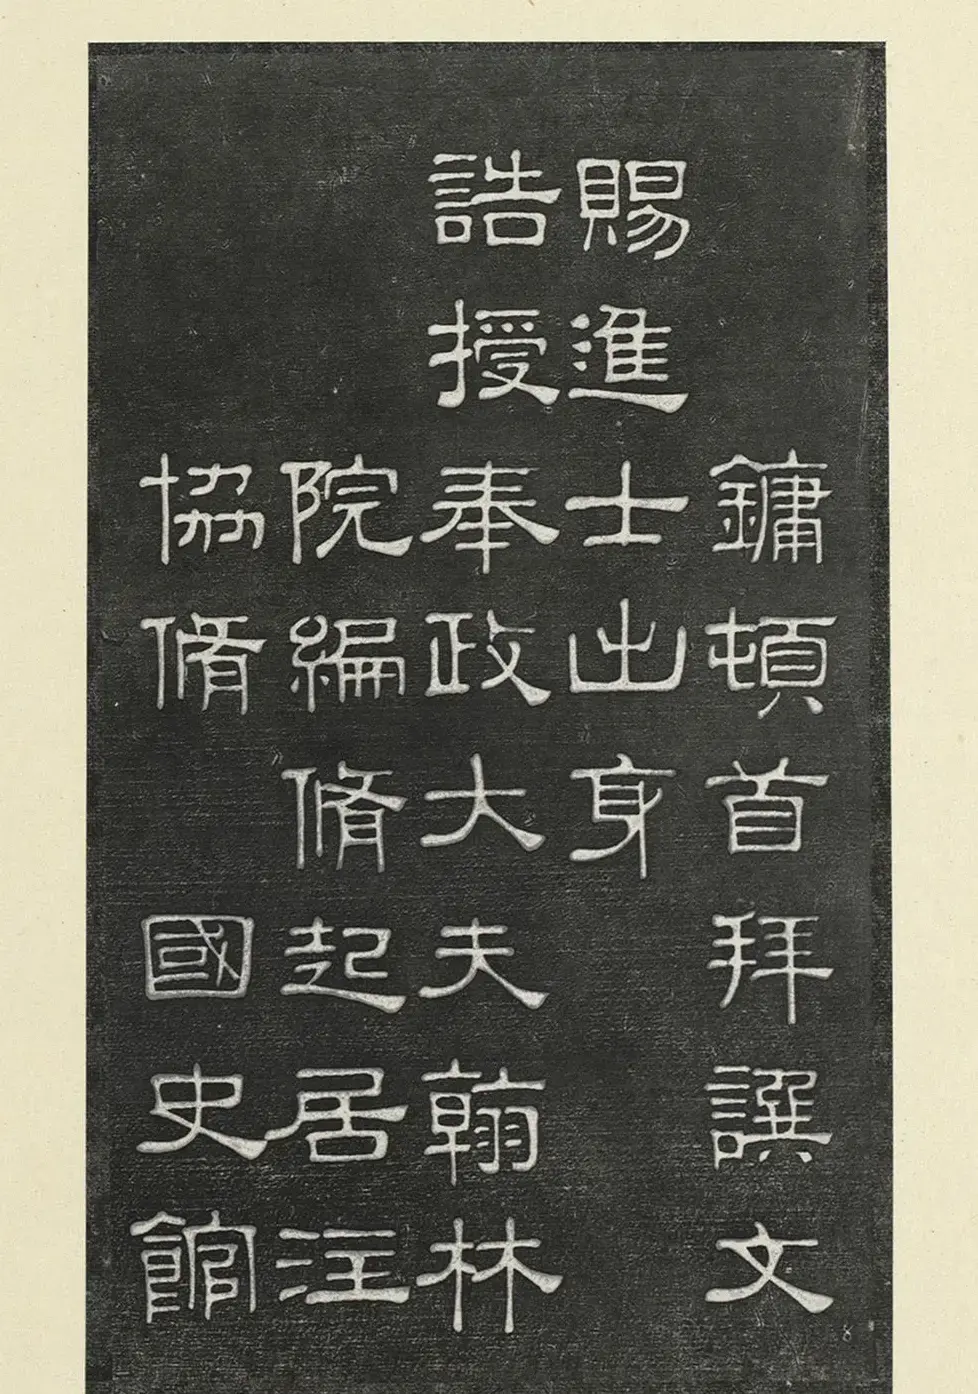 鏞頓首拜譔文
賜進士出身
誥授奉政大夫翰林
院編脩起居注
協脩國史館
8